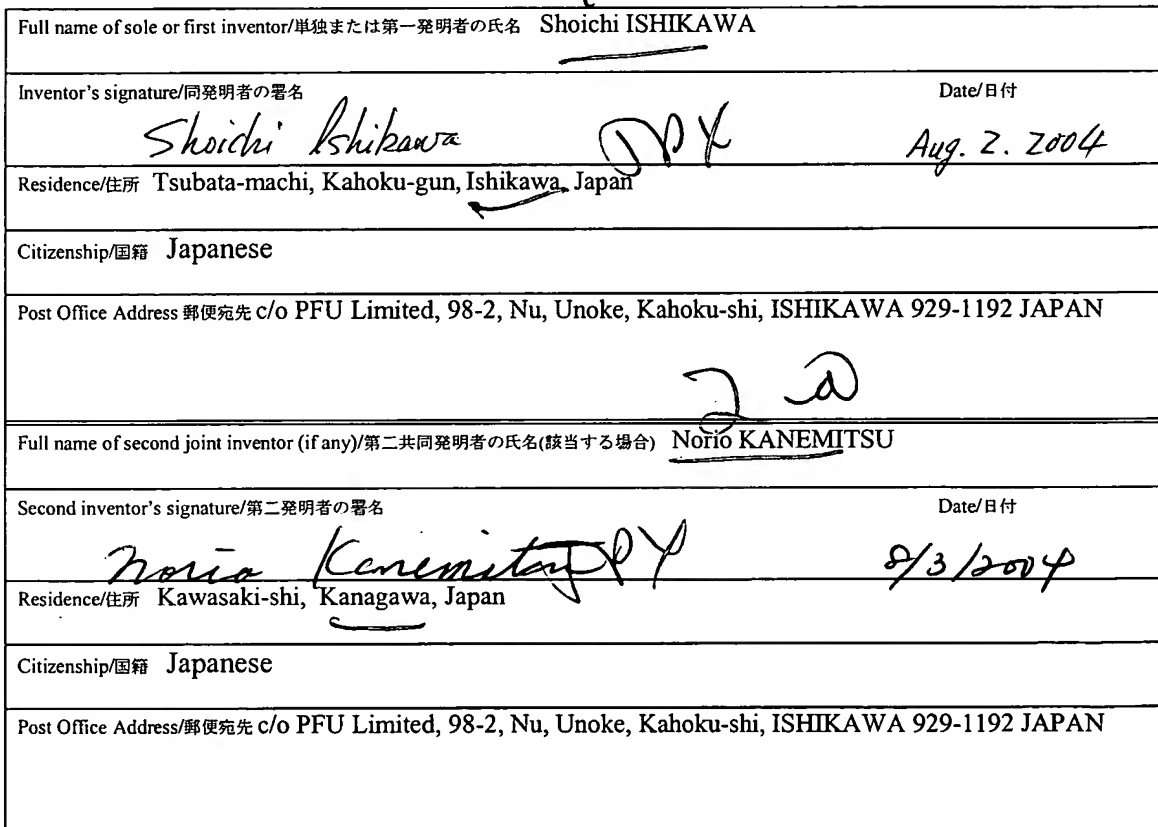 Full name of sole or first inventor/単独または第一発明者の氏名 Shoichi ISHIKAWA
Inventor's signature/同発明者の署名 Date/日付
Shoichi Ishikawa JPX Aug. 2. 2004
Residence/住所 Tsubata-machi, Kahoku-gun, Ishikawa, Japan
Citizenship/国籍 Japanese
Post Office Address 郵便宛先 c/o PFU Limited, 98-2, Nu, Unoke, Kahoku-shi, ISHIKAWA 929-1192 JAPAN
Full name of second joint inventor (if any)/第二共同発明者の氏名(該当する場合) Norio KANEMITSU
Second inventor's signature/第二発明者の署名 Date/日付
Norio Kanemitsu JPX 8/3/2004
Residence/住所 Kawasaki-shi, Kanagawa, Japan
Citizenship/国籍 Japanese
Post Office Address/郵便宛先 c/o PFU Limited, 98-2, Nu, Unoke, Kahoku-shi, ISHIKAWA 929-1192 JAPAN